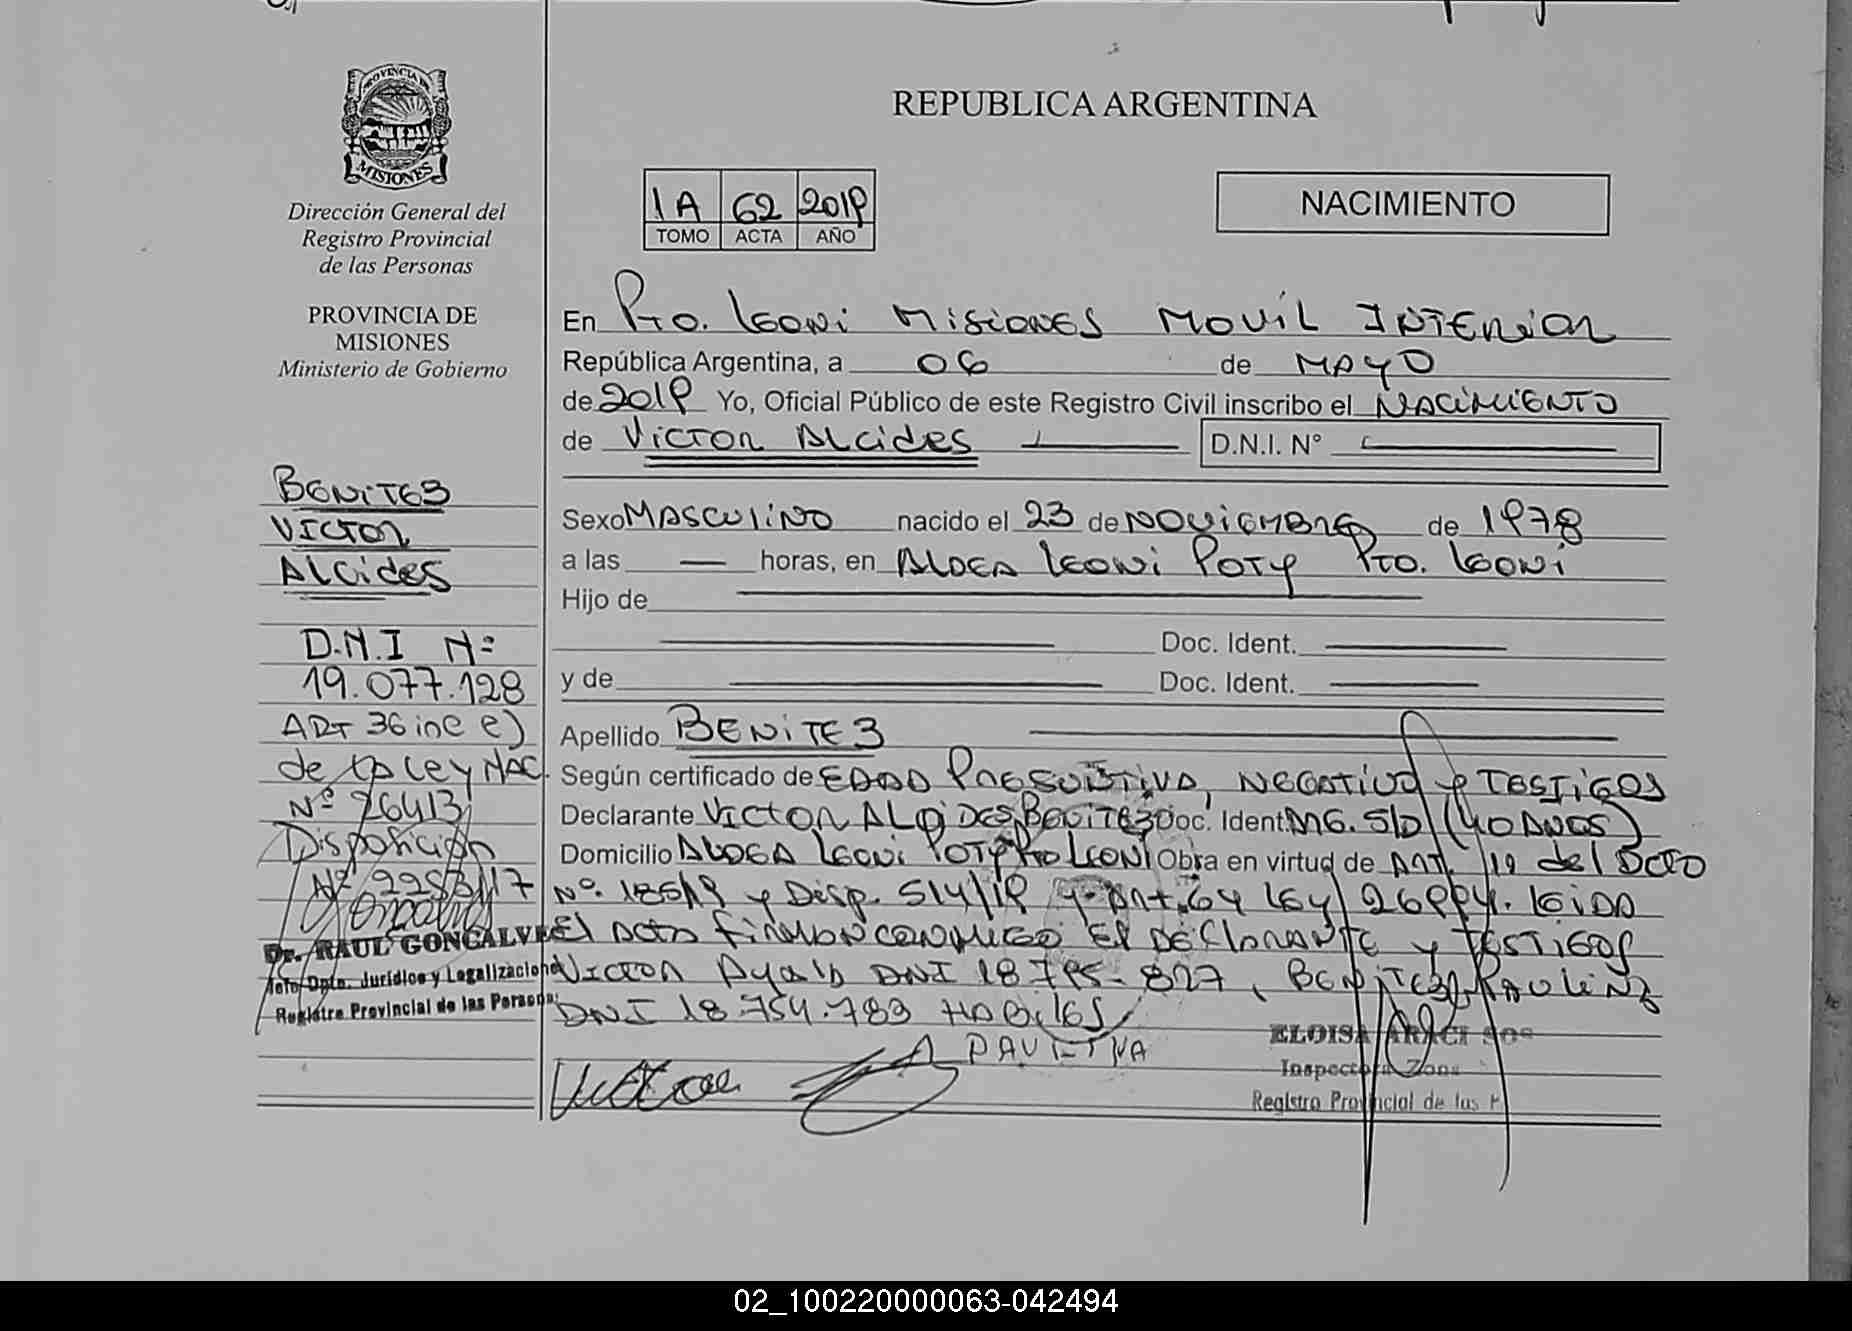 REPUBLICA ARGENTINA
PROVINCIA DE
MISIONES
Dirección General del
Registro Provincial
de las Personas
PROVINCIA DE
MISIONES
Ministerio de Gobierno
1A 62 2019
TOMO ACTA AÑO
NACIMIENTO
En Pto. Leoni Misiones Movil Interior
República Argentina, a 06 de MAYO
de 2019 Yo, Oficial Público de este Registro Civil inscribo el NACIMIENTO
de Victor Alcides D.N.I. N°
BENITEZ
VICTOR
Alcides
D.N.I Nº
19.077.128
ART 36 inc e)
de la Ley NAC
Nº 26413
Disposición
Nº 2253/17
Dr. RAUL GONCALVE
Jefe Dpto. Jurídico y Legalizacion
Registro Provincial de las Persona
Sexo MASCULINO nacido el 23 de NOVIEMBRE de 1978
a las — horas, en ALDEA Leoni Poty Pto. Leoni
Hijo de
Doc. Ident.
y de Doc. Ident.
Apellido BENITEZ
Según certificado de EDAD PRESUNTIVA, NEGATIVO y TESTIGOS
Declarante VICTOR ALCIDES BENITEZ Doc. Ident. M6. S/D (40 AÑOS)
Domicilio ALDEA Leoni POTY Pto LEONI Obra en virtud de ART. 19 del DCTO
Nº. 185/19 y Disp. 514/19 y Art. 64 Ley 26994. Leida
El Acta firman conmigo El Declarante y TESTIGOS
Victor Ayala DNI 18.795.827, BENITEZ PAULINA
DNI 18.754.783 HABILES
PAULINA
ELOISA ARACI SOS
Inspectora Zona
Registro Provincial de las P
02_100220000063-042494